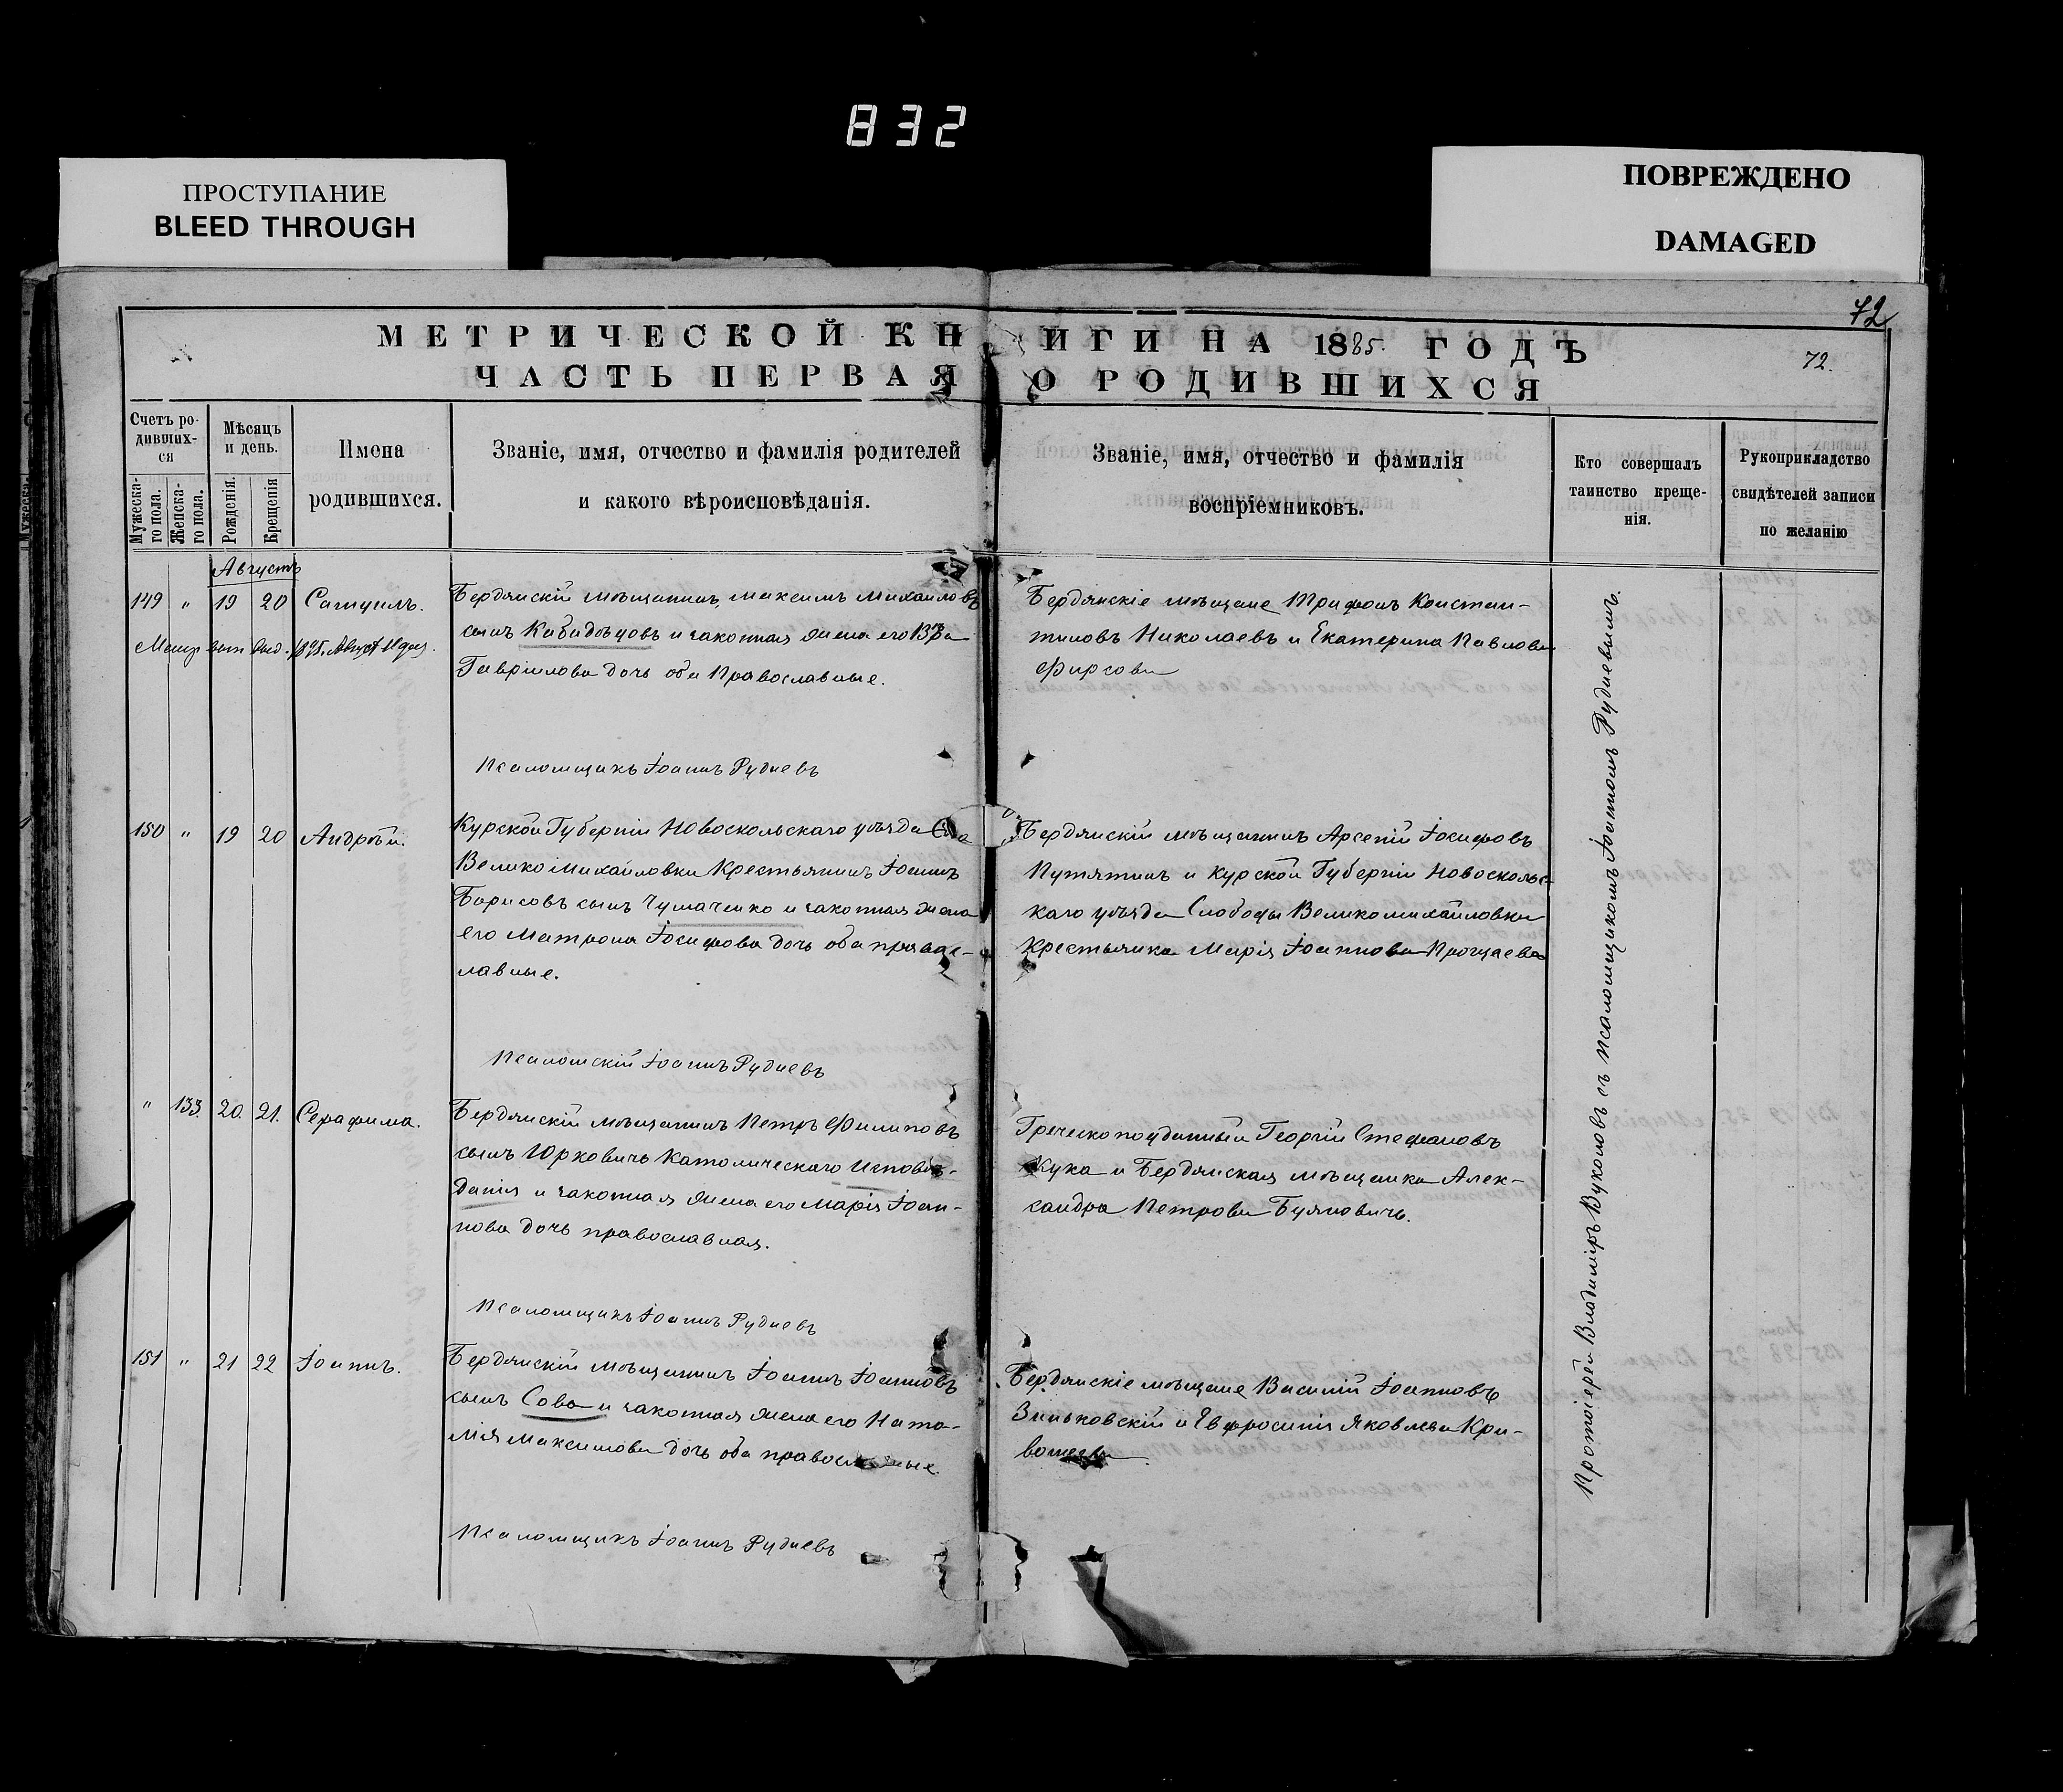 832
ПРОСТУПАНИЕ
BLEED THROUGH
ПОВРЕЖДЕНО
DAMAGED
72
МЕТРИЧЕСКОЙ КНИГИ НА 1885. ГОДЪ
72.
ЧАСТЬ ПЕРВАЯ О РОДИВШИХСЯ
Счетъ ро-
дивших-
ся
Мужеска-
го пола.
Женска-
го пола.
Мѣсяцъ
и день.
Рожденія.
Крещенія
Имена
родившихся.
Званіе, имя, отчество и фамилія родителей
и какого вѣроисповѣданія.
Званіе, имя, отчество и фамилія
воспріемниковъ.
Кто совершалъ
таинство креще-
нія.
Рукоприкладство
свидѣтелей записи
по желанію
Августъ
149 " 19 20 Самуилъ.
Бердянскій мѣщанинъ, Максимъ Михаиловъ
сынъ и законная жена его
Гавріилова дочь оба Православные.
Псаломщикъ Іоаннъ Рудневъ
Бердянскіе мѣщане Трифонъ Констан-
тиновъ Николаевъ и Екатерина Павлова
Фирсова
150 " 19 20 Андрей.
Курской Губерніи Новоскольскаго уѣзда
Велико Михайловки Крестьянинъ Іоаннъ
Борисовъ сынъ Чумаченко и законная жена
его Матрона Іосифова дочь оба правос-
лавные.
Псаломскій Іоаннъ Рудневъ
Бердянскій мѣщанинъ Арсеній Іосифовъ
Путятинъ и Курской Губерніи Новосколь-
скаго уѣзда Слободы Великомихайловки
крестьянка Марія Іоаннова
" 133. 20. 21. Серафима.
Бердянскій мѣщанинъ Петръ Филиповъ
сынъ Юрковичъ Католическаго Исповѣ-
данія и законная жена его Марія Іоан-
нова дочь православная.
Псаломщикъ Іоаннъ Рудневъ
Греческоподданный Георгій Стефановъ
Кука и Бердянская мѣщанка Алек-
сандра Петрова Буяновичъ.
151 " 21 22 Іоаннъ.
Бердянскій мѣщанинъ Іоаннъ Іоанновъ
сынъ Сова и законная жена его Ната-
лія Максимова дочь оба православные.
Псаломщикъ Іоаннъ Рудневъ
Бердянскіе мѣщане Василій Іоанновъ
Зиньковскій и Евфросинія Яковлева Кри-
Протоіерей Владиміръ Вуколовъ съ псаломщикомъ Іоанномъ Рудневымъ.